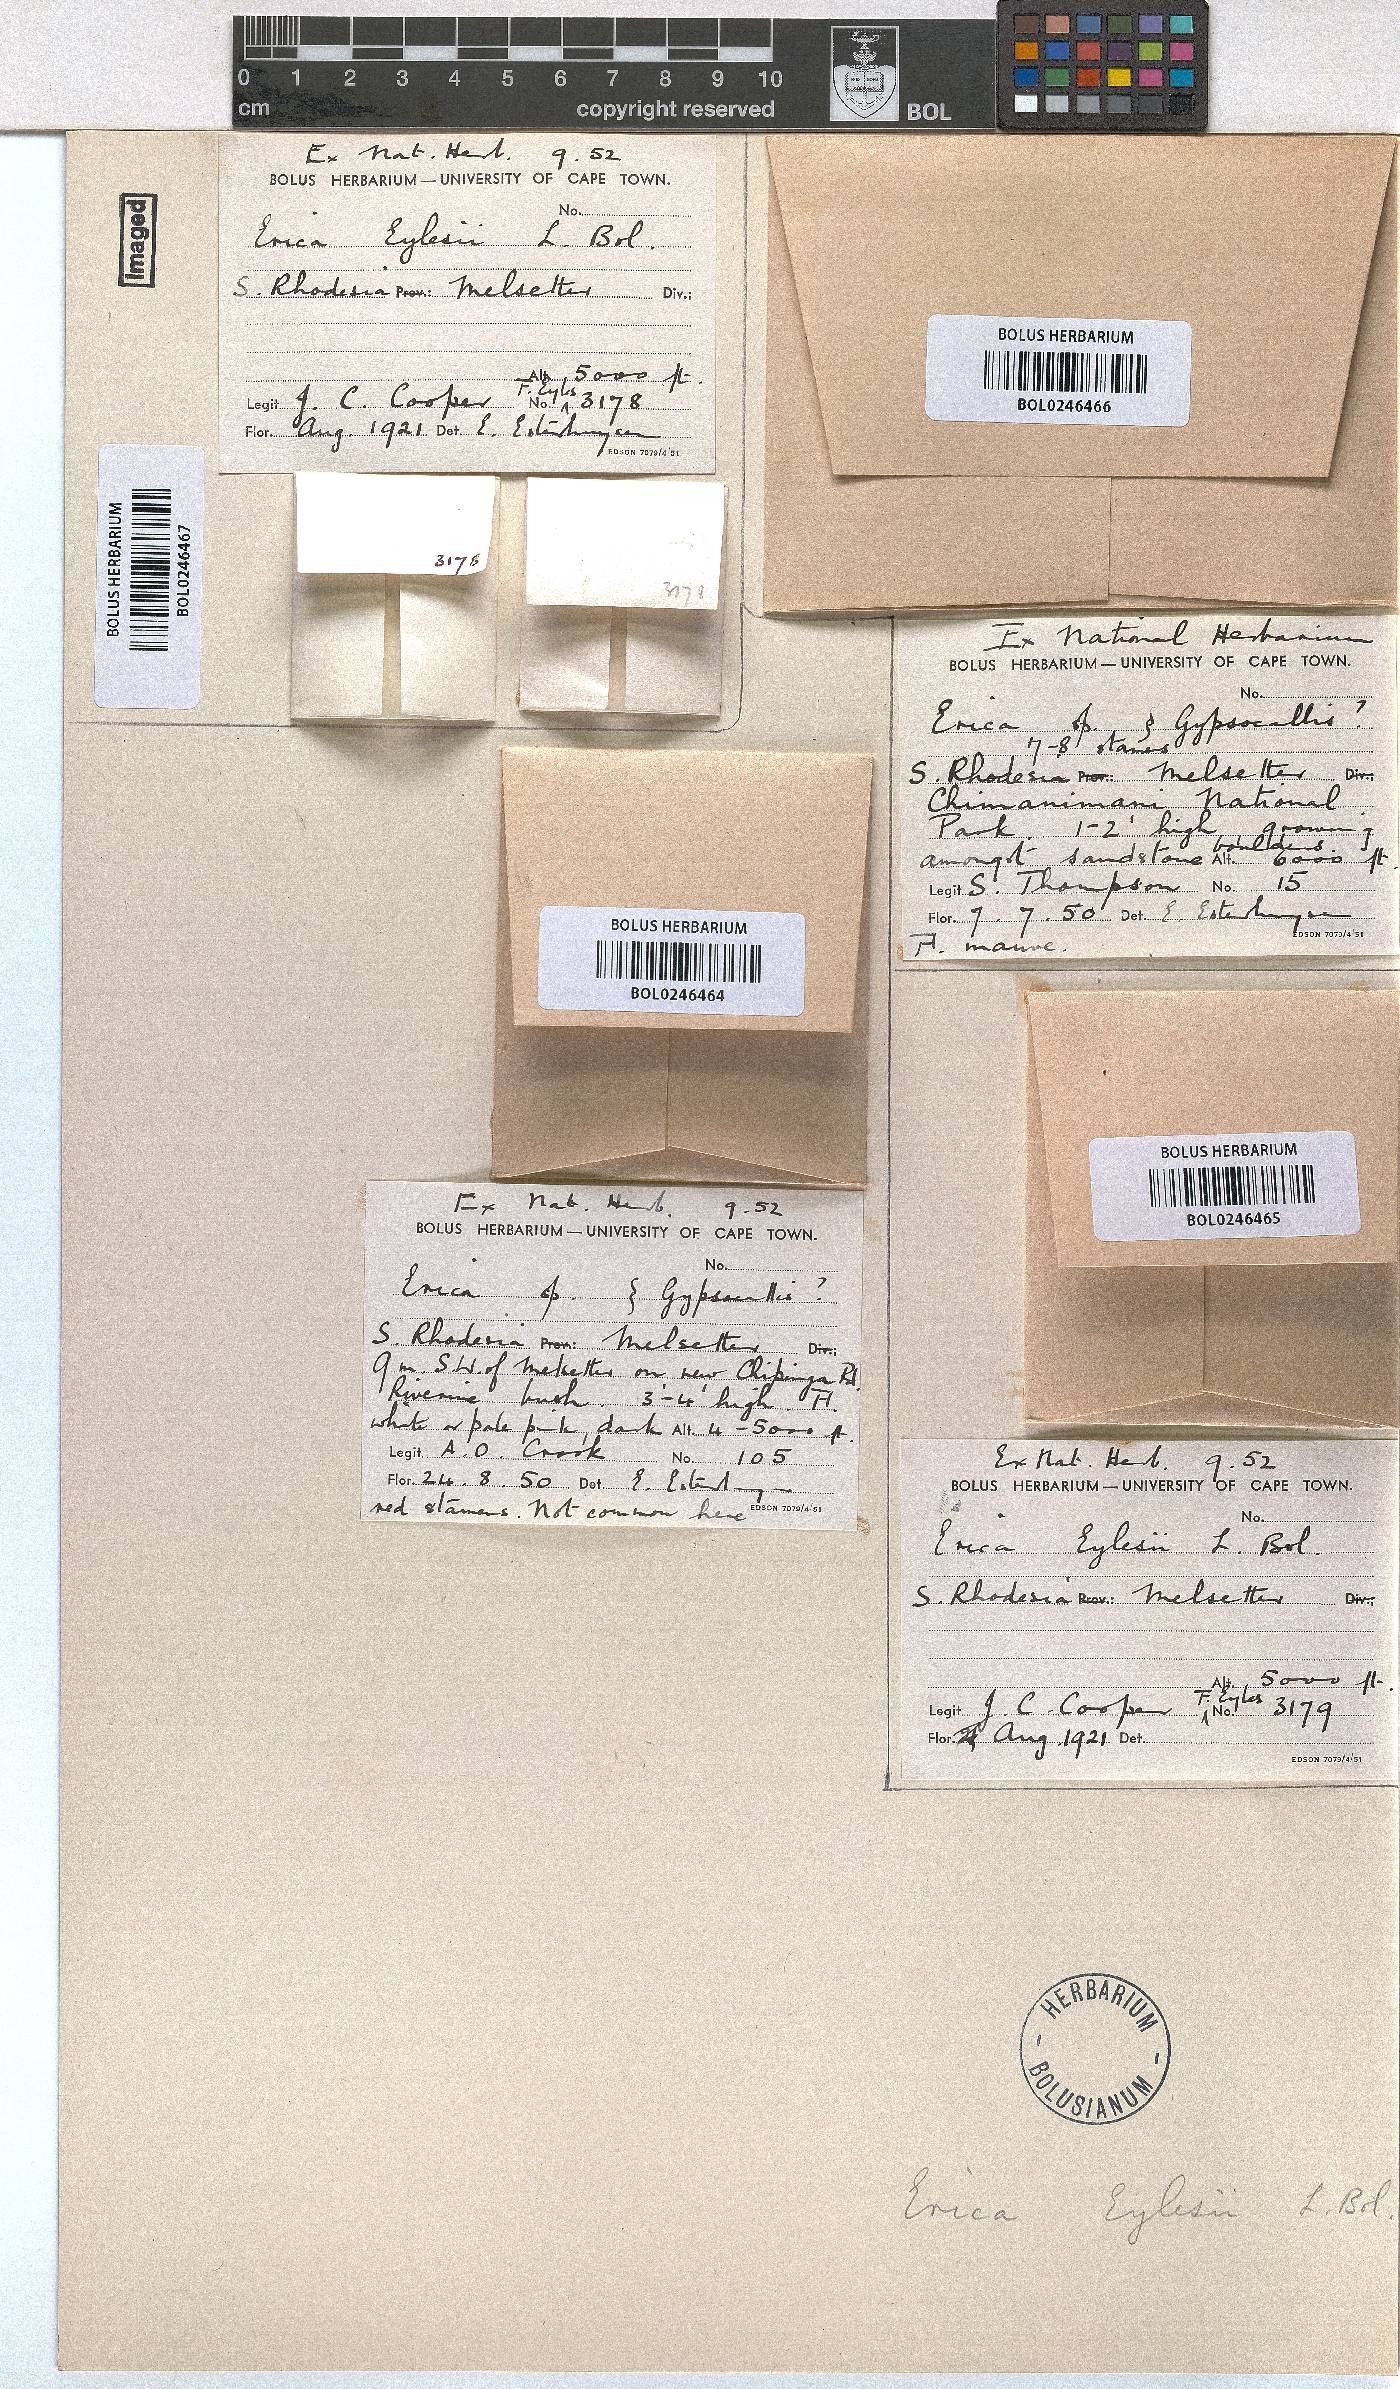 0 1 2 3 4 5 6 7 8 9 10
cm copyright reserved BOL
Imaged
Ex Nat. Herb. 9.52
BOLUS HERBARIUM—UNIVERSITY OF CAPE TOWN.
No.
Erica Eylesii L. Bol.
S. Rhodesia Prov.: Melsetter Div.;
Alt. 5000 ft.
Legit J. C. Cooper F. Eyles No. 3178
Flor. Aug. 1921 Det. E. Esterhuysen
EDSON 7079/4'51
BOLUS HERBARIUM
BOL0246467
3178
3178
BOLUS HERBARIUM
BOL0246466
Ex National Herbarium
BOLUS HERBARIUM—UNIVERSITY OF CAPE TOWN.
No.
Erica sp. § Gypsocallis?
7-8 stames
S. Rhodesia Prov.: Melsetter Div.;
Chimanimani National
Park. 1-2' high, growing
amongst sandstone boulders. Alt. 6000 ft.
Legit S. Thompson No. 15
Flor. 7.7.50 Det. E. Esterhuysen
EDSON 7079/4'51
Fl. mauve.
BOLUS HERBARIUM
BOL0246464
Ex Nat. Herb. 9.52
BOLUS HERBARIUM—UNIVERSITY OF CAPE TOWN.
No.
Erica sp. § Gypsocallis?
S. Rhodesia Prov.: Melsetter Div.;
9 m. S.W. of Melsetter on new Chipinga Rd.
Riverine bush. 3'-4' high. Fl.
white or pale pink, dark Alt. 4-5000 ft.
Legit A.O. Crook No. 105
Flor. 24.8.50 Det. E. Esterhuysen
red stamens. Not common here
EDSON 7079/4'51
BOLUS HERBARIUM
BOL0246465
Ex Nat. Herb. 9.52
BOLUS HERBARIUM—UNIVERSITY OF CAPE TOWN.
No.
Erica Eylesii L. Bol.
S. Rhodesia Prov.: Melsetter Div.;
Alt. 5000 ft.
Legit J. C. Cooper F. Eyles No. 3179
Flor. Aug. 1921 Det.
EDSON 7079/4'51
HERBARIUM
BOLUSIANUM
Erica Eylesii L. Bol.